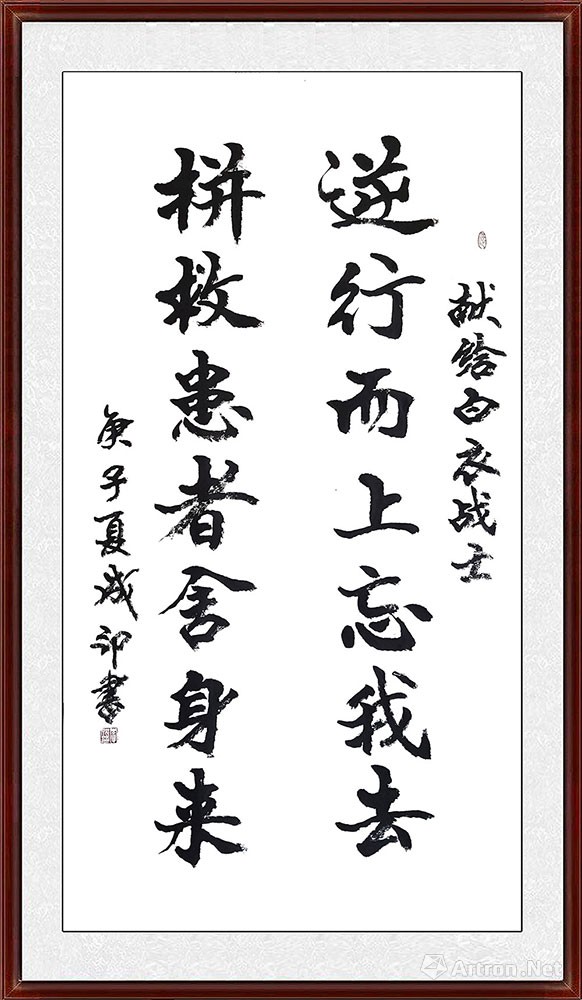 献给白衣战士
逆行而上忘我去
拼救患者舍身来
庚子夏成印书
Artron.Net